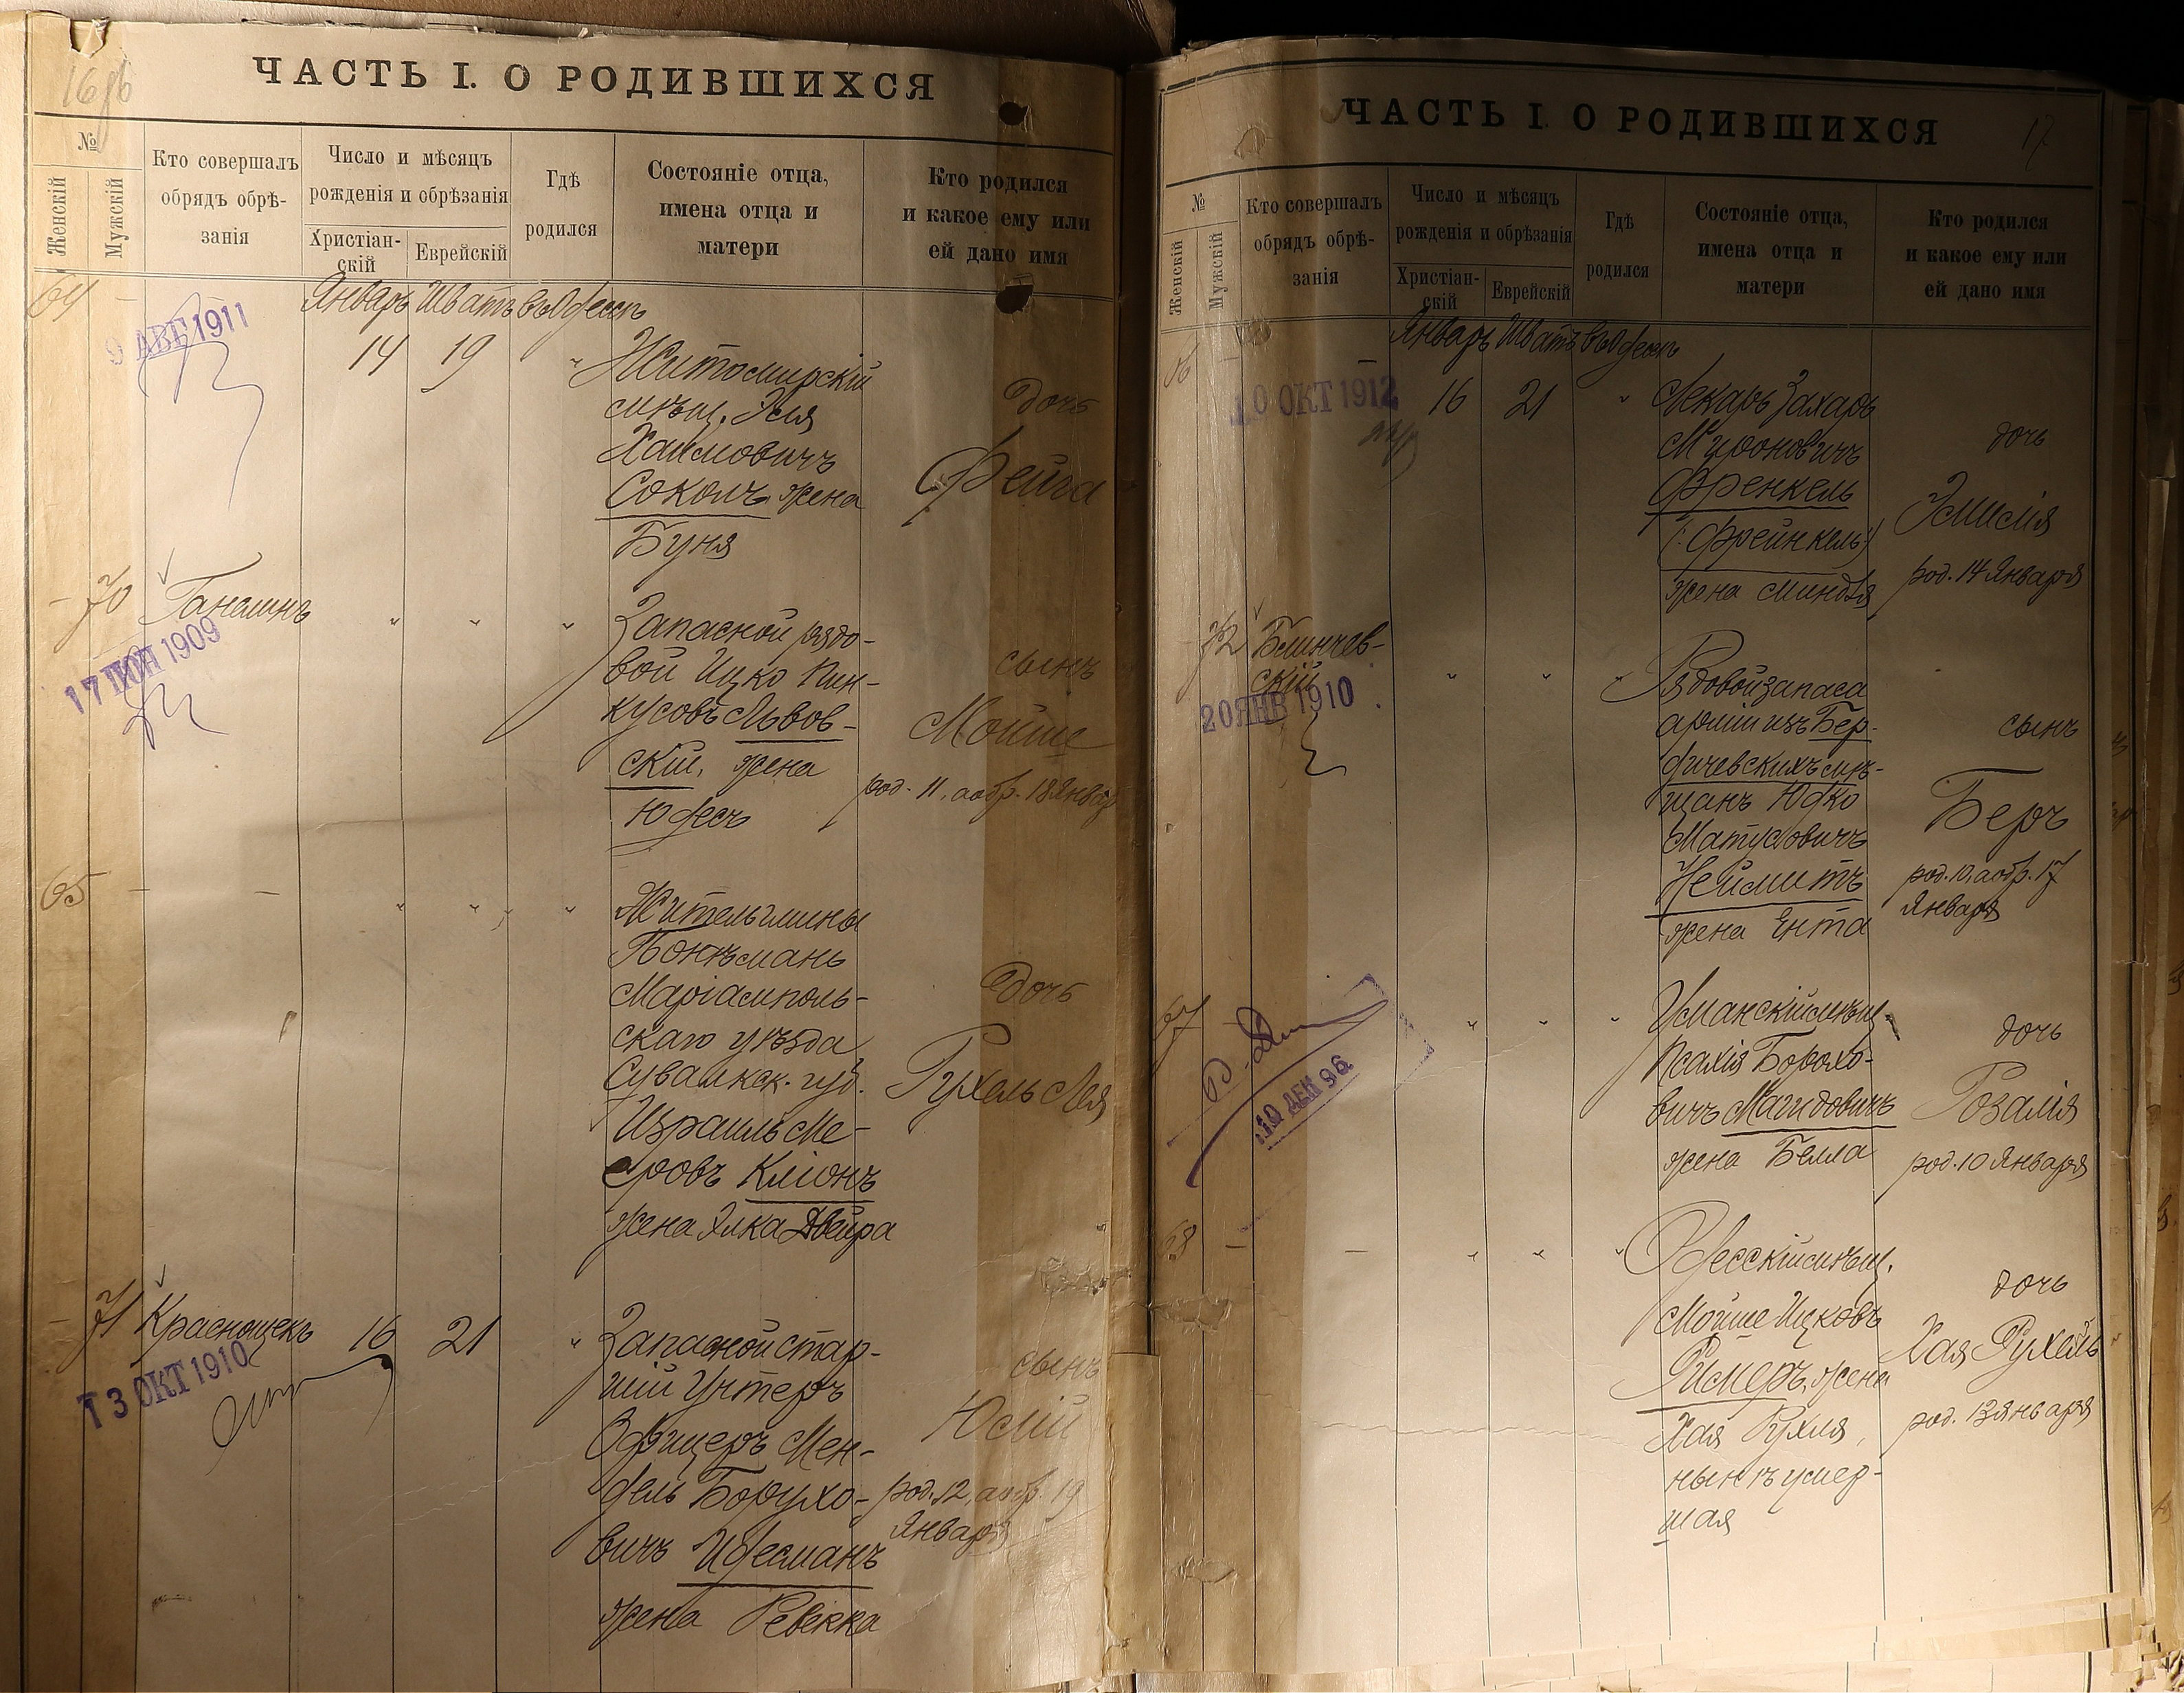 16об
ЧАСТЬ I. О РОДИВШИХСЯ
№
Женскій
Мужскій
Кто совершалъ
обрядъ обрѣ-
занія
Число и мѣсяцъ
рожденія и обрѣзанія
Христіан-
скій
Еврейскій
Гдѣ
родился
Состояніе отца,
имена отца и
матери
Кто родился
и какое ему или
ей дано имя
Январь Шватъ въ Одессѣ
64 -
9 АВГ 1911
14 19 "
Житомирскій
мѣщ. Эля
Хаимовичъ
Соколъ жена
Буня
дочь
Фейга
- 70 Ганелинъ " " "
17 ИЮН 1909
Запасной рядо-
вой Ицко Пин-
кусовъ Львов-
скій, жена
Юдесъ
сынъ
Мойше
род. 11, а обр. 18 Январ
65 - - " " "
Житель гмины
Понѣмань
Маріамполь-
скаго уѣзда
Сувалкск. губ.
Израиль Ме-
еровъ Кліонъ
жена Элка Двейра
дочь
Рухель Лея
- 71 Краснощекъ 16 21 "
13 ОКТ 1910
Запасной стар-
шій Унтеръ
Офицеръ Мен-
дель Борухо-
вичъ Идесманъ
жена Ревекка
сынъ
Юлій
род. 12, а обр. 19
Января
17
ЧАСТЬ I. О РОДИВШИХСЯ
№
Женскій
Мужскій
Кто совершалъ
обрядъ обрѣ-
занія
Число и мѣсяцъ
рожденія и обрѣзанія
Христіан-
скій
Еврейскій
Гдѣ
родился
Состояніе отца,
имена отца и
матери
Кто родился
и какое ему или
ей дано имя
Январь Шватъ въ Одессѣ
66 - -
10 ОКТ 1912
16 21 "
Лекарь Захаръ
Мироновичъ
Френкель
(: Фрейнкель :)
жена Миндля
дочь
Эмилія
род. 14 Января
72 Блинчев-
скій
20 ЯНВ 1910
" " "
Рядовой запаса
арміи изъ Бер-
дичевскихъ мѣ-
щанъ Юдко
Матусовичъ
Неймитъ
жена Ента
сынъ
Беръ
род. 10, а обр. 17
Января
67 -
10 ДЕК 96
" " "
Уманскій мѣщ.
Псахія Борохо-
вичъ Магидовичъ
жена Белла
дочь
Розалія
род. 10 Января
68 - - " " "
Одесскій мѣщ.
Мойше Ицковъ
Римеръ, жена
Хая Рухля,
нынѣ умер-
шая
дочь
Хая Рухель
род. 13 Января